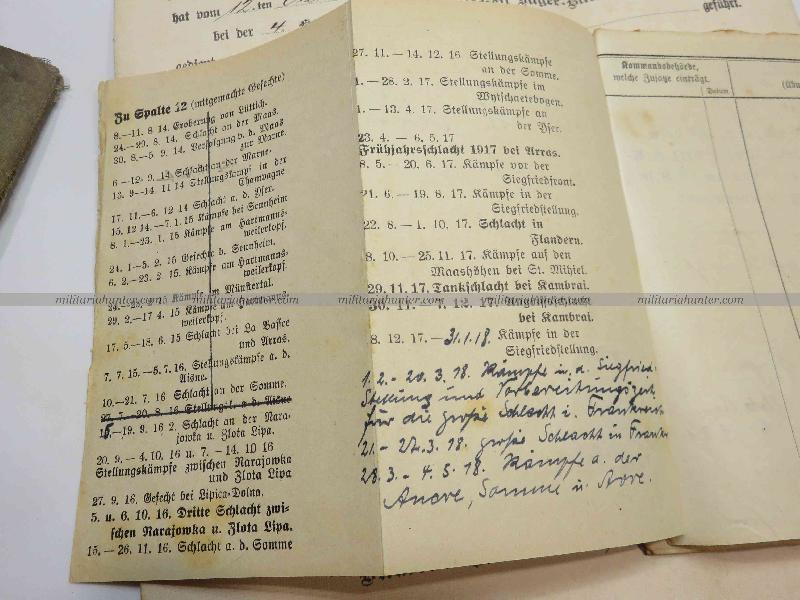 hat vom 12.ten
geführt.
bei der 4.
gedient
Kommandobehörde,
welche Zusätze einträgt.
Datum
Zu Spalte 12 (mitgemachte Gefechte)
8.—11. 8 14. Eroberung von Lüttich.
24.—29. 8. 14. Schlacht an der Maas.
30. 8.—5. 9. 14. Verfolgung v. d. Maas
zur Marne.
6.—12. 9. 14 Schlacht an der Marne.
13. 9.—14. 11 14 Stellungskampf in der
Champagne
17. 11.—6. 12 14 Schlacht a. d. Yser.
15. 12 14.—7. 1. 15 Kämpfe bei Sennheim
8. 1.—23. 1. 15 Kämpfe am Hartmanns-
weilerkopf.
24. 1.—5. 2. 15 Gefechte b. Sennheim.
6. 2.—23. 2 15. Kämpfe am Hartmanns-
weilerkopf.
24.—28. 2. 15 Kämpfe im Münstertal.
29. 2.—17 4. 15 Kämpfe am Hartmanns-
weilerkopf.
17. 5.—18. 6. 15 Schlacht bei La Bassee
und Arras.
7. 7. 15.—5. 7. 16. Stellungskämpfe a. d.
Aisne.
10.—21. 7. 16 Schlacht an der Somme.
27. 7.—20. 8. 16 Stellungsk. a. d. Aisne
15.—19. 9. 16 2. Schlacht an der Nara-
jowka u. Zlota Lipa.
20. 9.—4. 10. 16 u. 7.—14. 10 16
Stellungskämpfe zwischen Narajowka
und Zlota Lipa
27. 9. 16. Gefecht bei Lipica-Dolna.
5. u 6. 10. 16. Dritte Schlacht zwi-
schen Narajowka u. Zlota Lipa.
15.—26. 11. 16. Schlacht a. d. Somme
27. 11.—14. 12. 16 Stellungskämpfe
an der Somme.
1.—28. 2. 17. Stellungskämpfe im
Wytschaetebogen.
1.—13. 4. 17. Stellungskämpfe an
der Yser.
23. 4.—6. 5. 17
Frühjahrsschlacht 1917 bei Arras.
8. 5.—20. 6. 17. Kämpfe vor der
Siegfriedfront.
21. 6.—19. 8. 17. Kämpfe in der
Siegfriedstellung.
22. 8.—1. 10. 17. Schlacht in
Flandern.
8. 10.—25. 11. 17. Kämpfe auf den
Maashöhen bei St. Mihiel.
29. 11. 17. Tankschlacht bei Kambrai.
30. 11.—7. 12. 17. Angriffsschlacht
bei Kambrai.
8. 12. 17.—31.1.18. Kämpfe in der
Siegfriedstellung.
1. 2.- 20. 3. 18. Kämpfe i. d. Siegfried
Stellung und Vorbereitungszeit
für die große Schlacht i. Frankreich
21.- 27. 3. 18. große Schlacht in Frankr
28. 3.- 4. 5. 18. Kämpfe a. der
Ancre, Somme u. Avre.
militariahunter.com
militariahunter.com
militariahunter.com
militariahunter.com
militariahunter.com
militariahunter.com